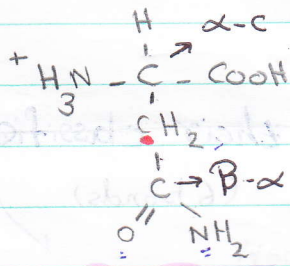 H α-C
+
H3N - C - COOH
CH2
C → B-α
O NH2